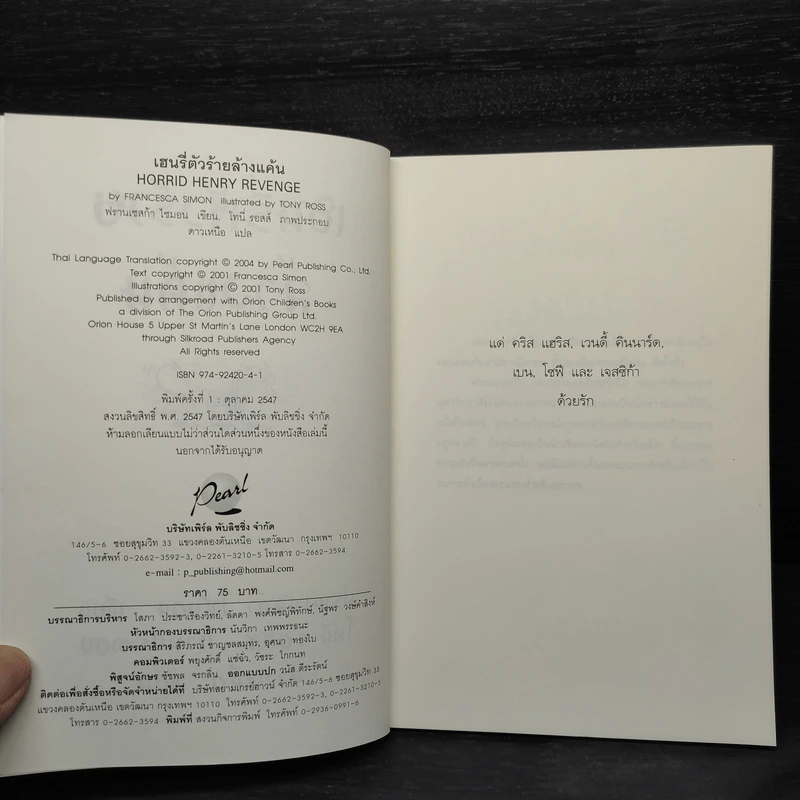 เฮนรี่ตัวร้ายล้างแค้น
HORRID HENRY REVENGE
by FRANCESCA SIMON illustrated by TONY ROSS
ฟรานเซสก้า ไซมอน เขียน, โทนี่ รอสส์ ภาพประกอบ
ดาวเหนือ แปล
Thai Language Translation copyright © 2004 by Pearl Publishing Co., Ltd.
Text copyright © 2001 Francesca Simon
Illustrations copyright © 2001 Tony Ross
Published by arrangement with Orion Children's Books
a division of The Orion Publishing Group Ltd.
Orion House 5 Upper St Martin's Lane London WC2H 9EA
through Silkroad Publishers Agency
All Rights reserved
ISBN 974-92420-4-1
พิมพ์ครั้งที่ 1 : ตุลาคม 2547
สงวนลิขสิทธิ์ พ.ศ. 2547 โดยบริษัทเพิร์ล พับลิชชิ่ง จำกัด
ห้ามลอกเลียนแบบไม่ว่าส่วนใดส่วนหนึ่งของหนังสือเล่มนี้
นอกจากได้รับอนุญาต
Pearl
บริษัทเพิร์ล พับลิชชิ่ง จำกัด
146/5-6 ซอยสุขุมวิท 33 แขวงคลองตันเหนือ เขตวัฒนา กรุงเทพฯ 10110
โทรศัพท์ 0-2662-3592-3, 0-2261-3210-5 โทรสาร 0-2662-3594
e-mail : p_publishing@hotmail.com
ราคา 75 บาท
บรรณาธิการบริหาร โสภา ประชาเรืองวิทย์, ลัดดา พงศ์พิชญ์พิทักษ์, นัฐพร วงษ์คำสิงห์
หัวหน้ากองบรรณาธิการ นันวิกา เทพพรรธนะ
บรรณาธิการ สิริภรณ์ ชาญชลสมุทร, อุศนา ทองใบ
คอมพิวเตอร์ พยุงศักดิ์ แซ่ฉั่ว, วัชระ โกกนท
พิสูจน์อักษร ชัชพล จรกลิ่น ออกแบบปก วนัส ตีระรัตน์
ติดต่อเพื่อสั่งซื้อหรือจัดจำหน่ายได้ที่ บริษัทสยามเกรย์ฮาวน์ จำกัด 146/5-6 ซอยสุขุมวิท 33
แขวงคลองตันเหนือ เขตวัฒนา กรุงเทพฯ 10110 โทรศัพท์ 0-2662-3592-3, 0-2261-3210-5
โทรสาร 0-2662-3594 พิมพ์ที่ สงวนกิจการพิมพ์ โทรศัพท์ 0-2936-0991-6
แด่ คริส แฮริส, เวนดี้ คินนาร์ด,
เบน, โซฟี และ เจสซิก้า
ด้วยรัก